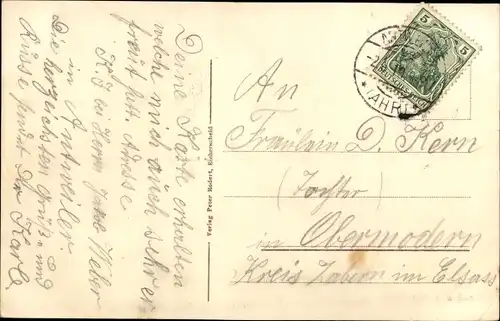 Deine Karte erhalten
welche mich auch sehr er-
freut hat Adresse
K. J. bei Herrn Jakob Weber
in Antweiler
Die herzichsten Grüße und
Küsse sendet Dir Karl
Verlag Peter Rodert,
5
5
(AHR)
An
Fräulein D. Kern
(Tochter)
in Obermodern
Kreis Zabern im Elsass